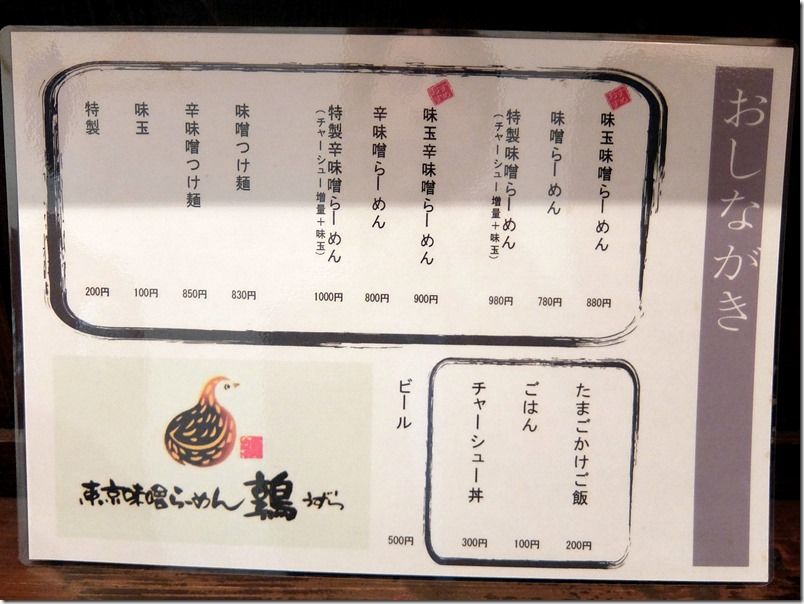 おしながき
おすすめ
味玉味噌らーめん 880円
味噌らーめん 780円
特製味噌らーめん 980円
(チャーシュー増量+味玉)
おすすめ
味玉辛味噌らーめん 900円
辛味噌らーめん 800円
特製辛味噌らーめん 1000円
(チャーシュー増量+味玉)
味噌つけ麺 830円
辛味噌つけ麺 850円
味玉 100円
特製 200円
たまごかけご飯 200円
ごはん 100円
チャーシュー丼 300円
ビール 500円
東京味噌らーめん 鶉 うずら